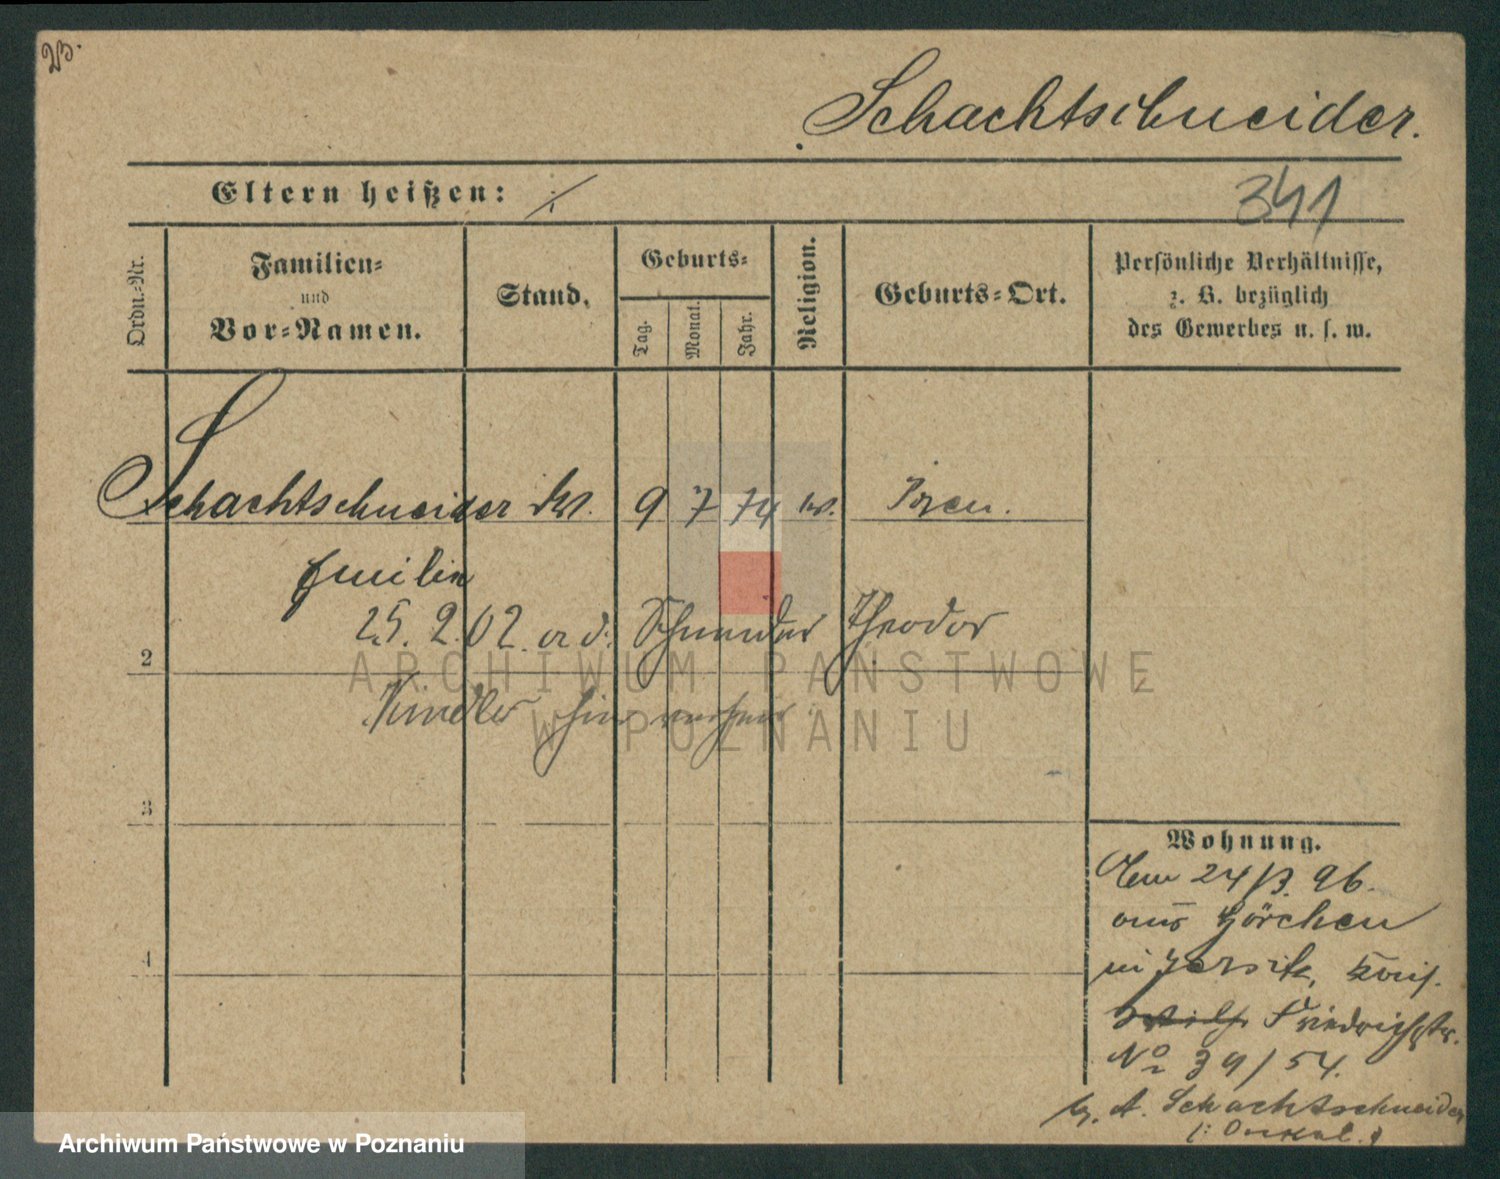 Schachtschneider.
Eltern heißen: ./.
341
Ordn.-Nr.
Familien-
und
Vor-Namen.
Stand.
Geburts-
Tag.
Monat.
Jahr.
Religion.
Geburts-Ort.
Persönliche Verhältnisse,
z. B. bezüglich
des Gewerbes u. s. w.
Schachtschneider 9 7 74
Emilie
25. 2. 02 Schneider Theodor
2
Kindler
3
4
Wohnung.
Am 24/3. 96.
aus Görchen
in Jersitz,
Friedrichstr.
No 39/54.
b. A. Schachtschneider
ARCHIWUM PAŃSTWOWE
W POZNANIU
Archiwum Państwowe w Poznaniu